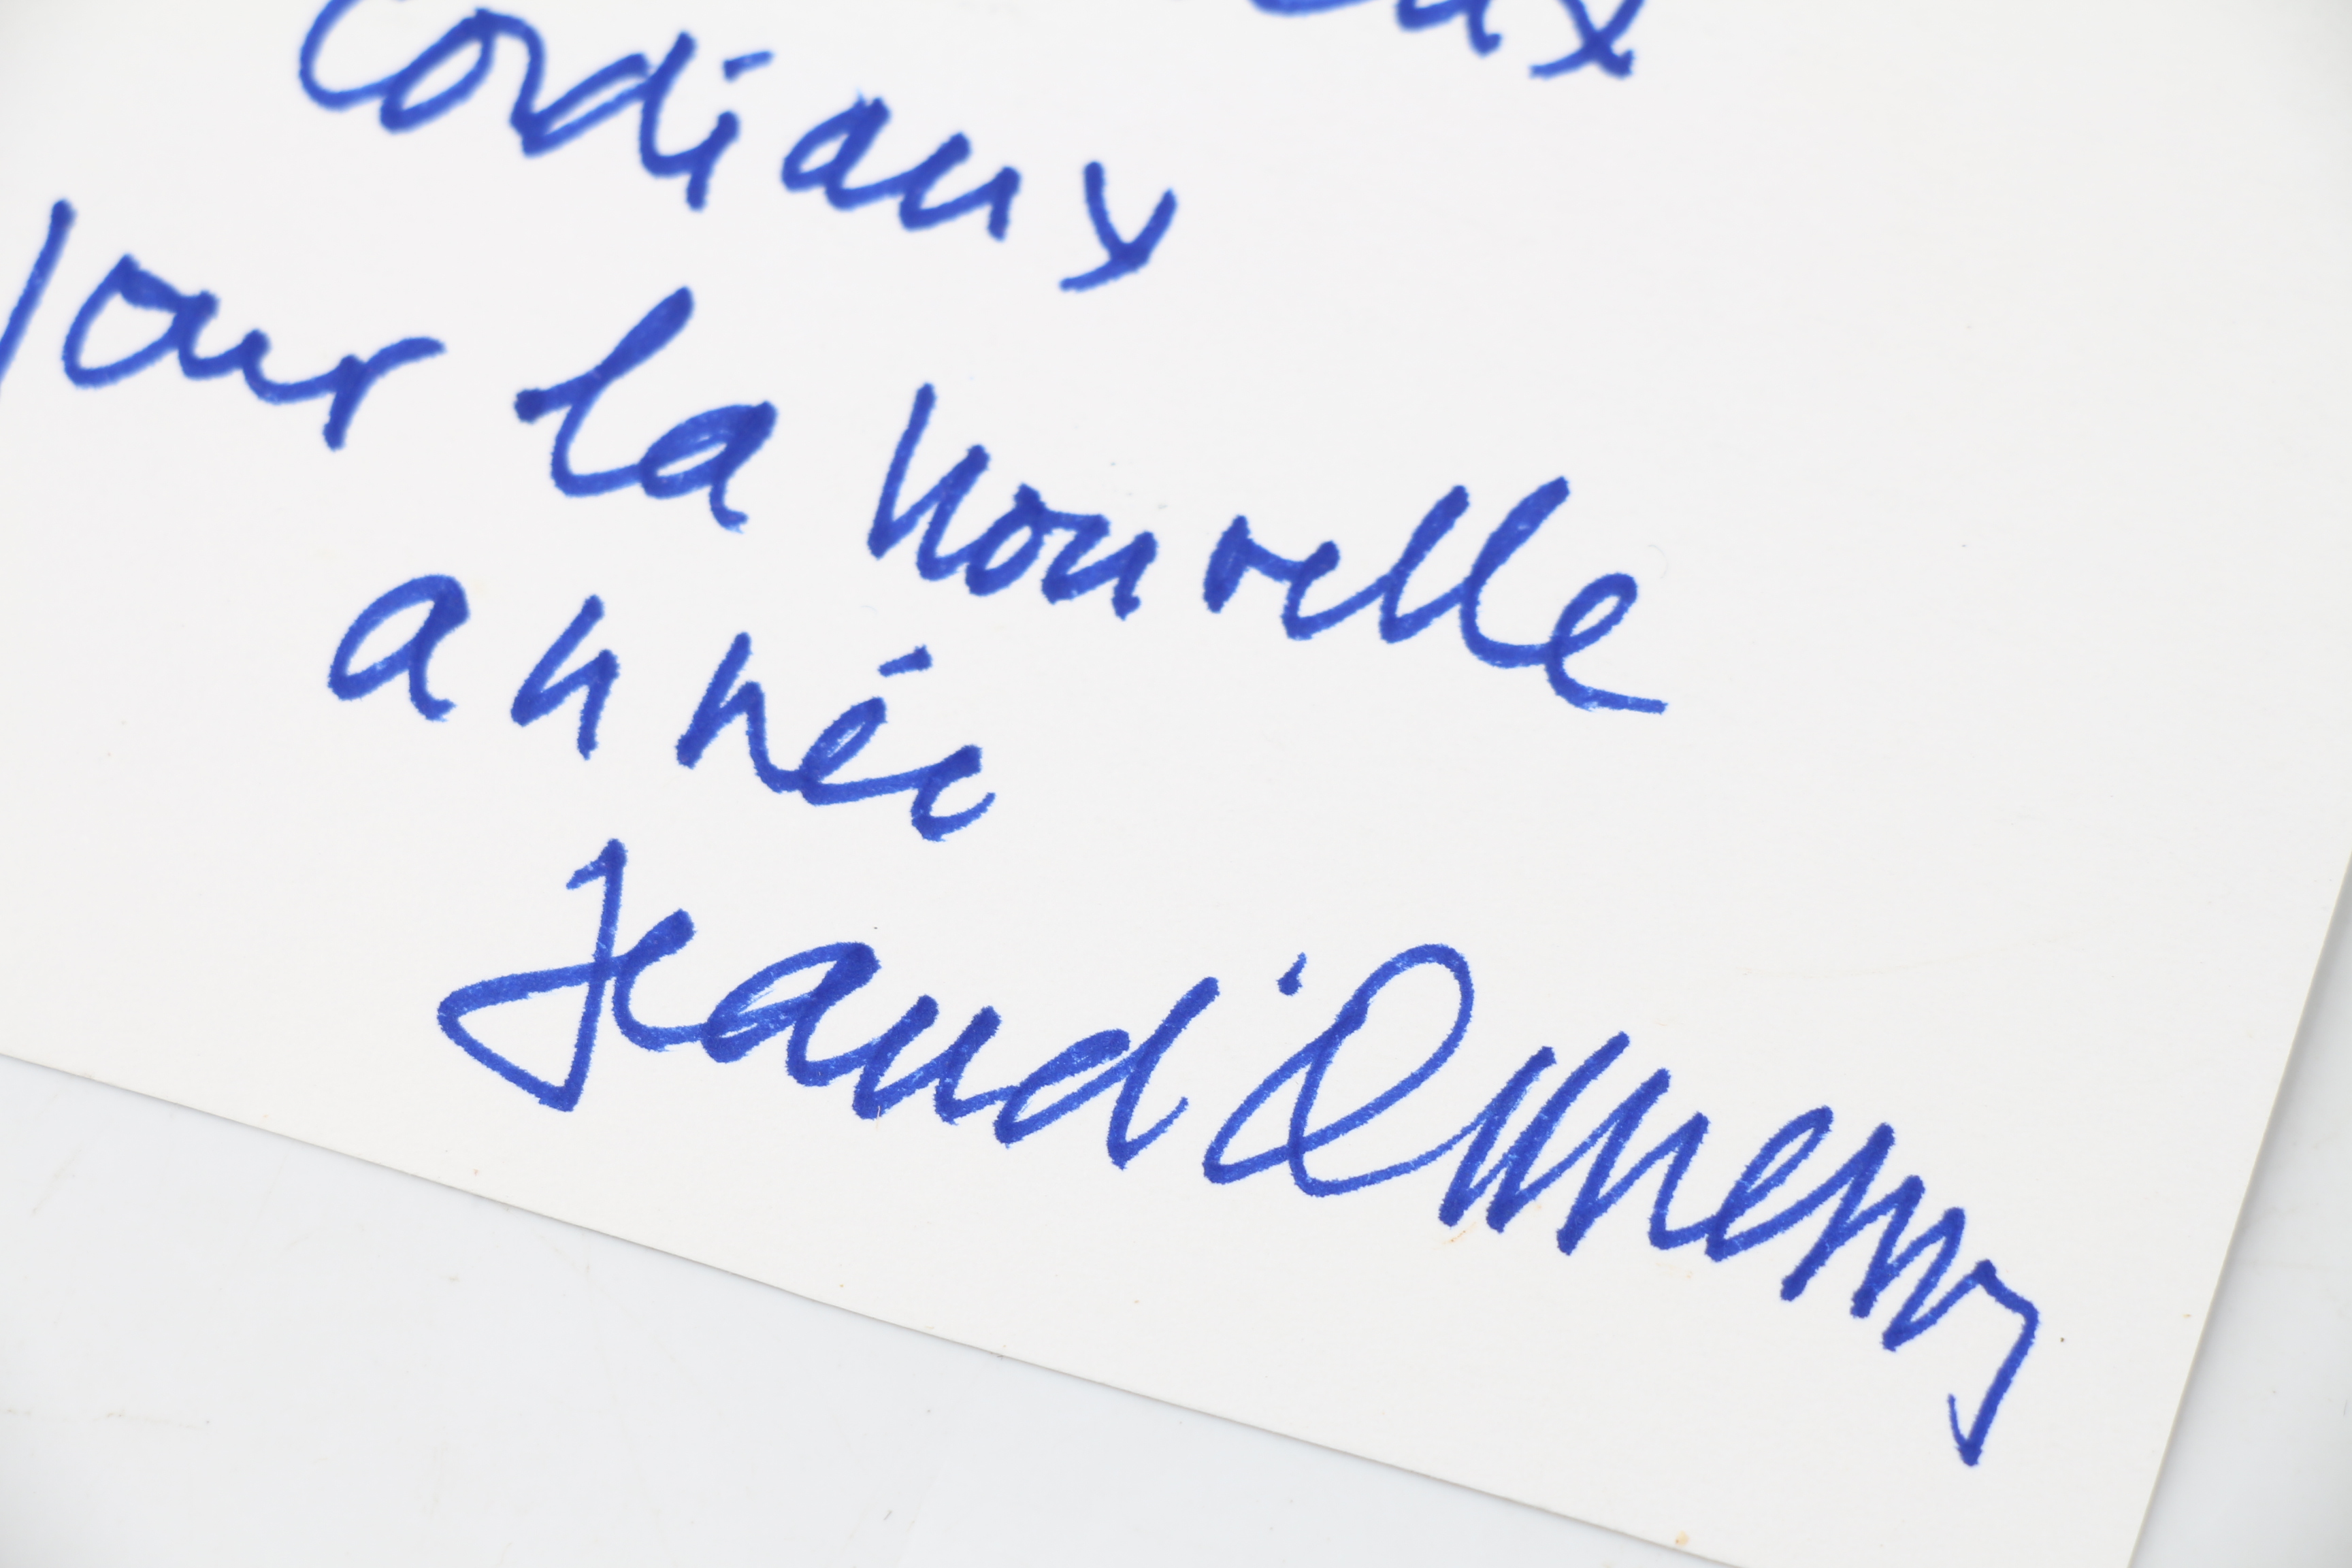 Cordiaux
pour la nouvelle
année
Jean d'Ormesson